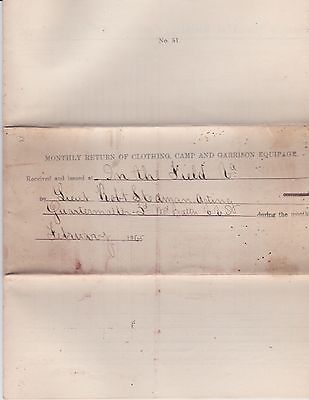 No. 51.
MONTHLY RETURN OF CLOTHING, CAMP AND GARRISON EQUIPAGE,
Received and issued at In the Field
by Lieut Robt Acting
Quartermaster
during the month
February 1865